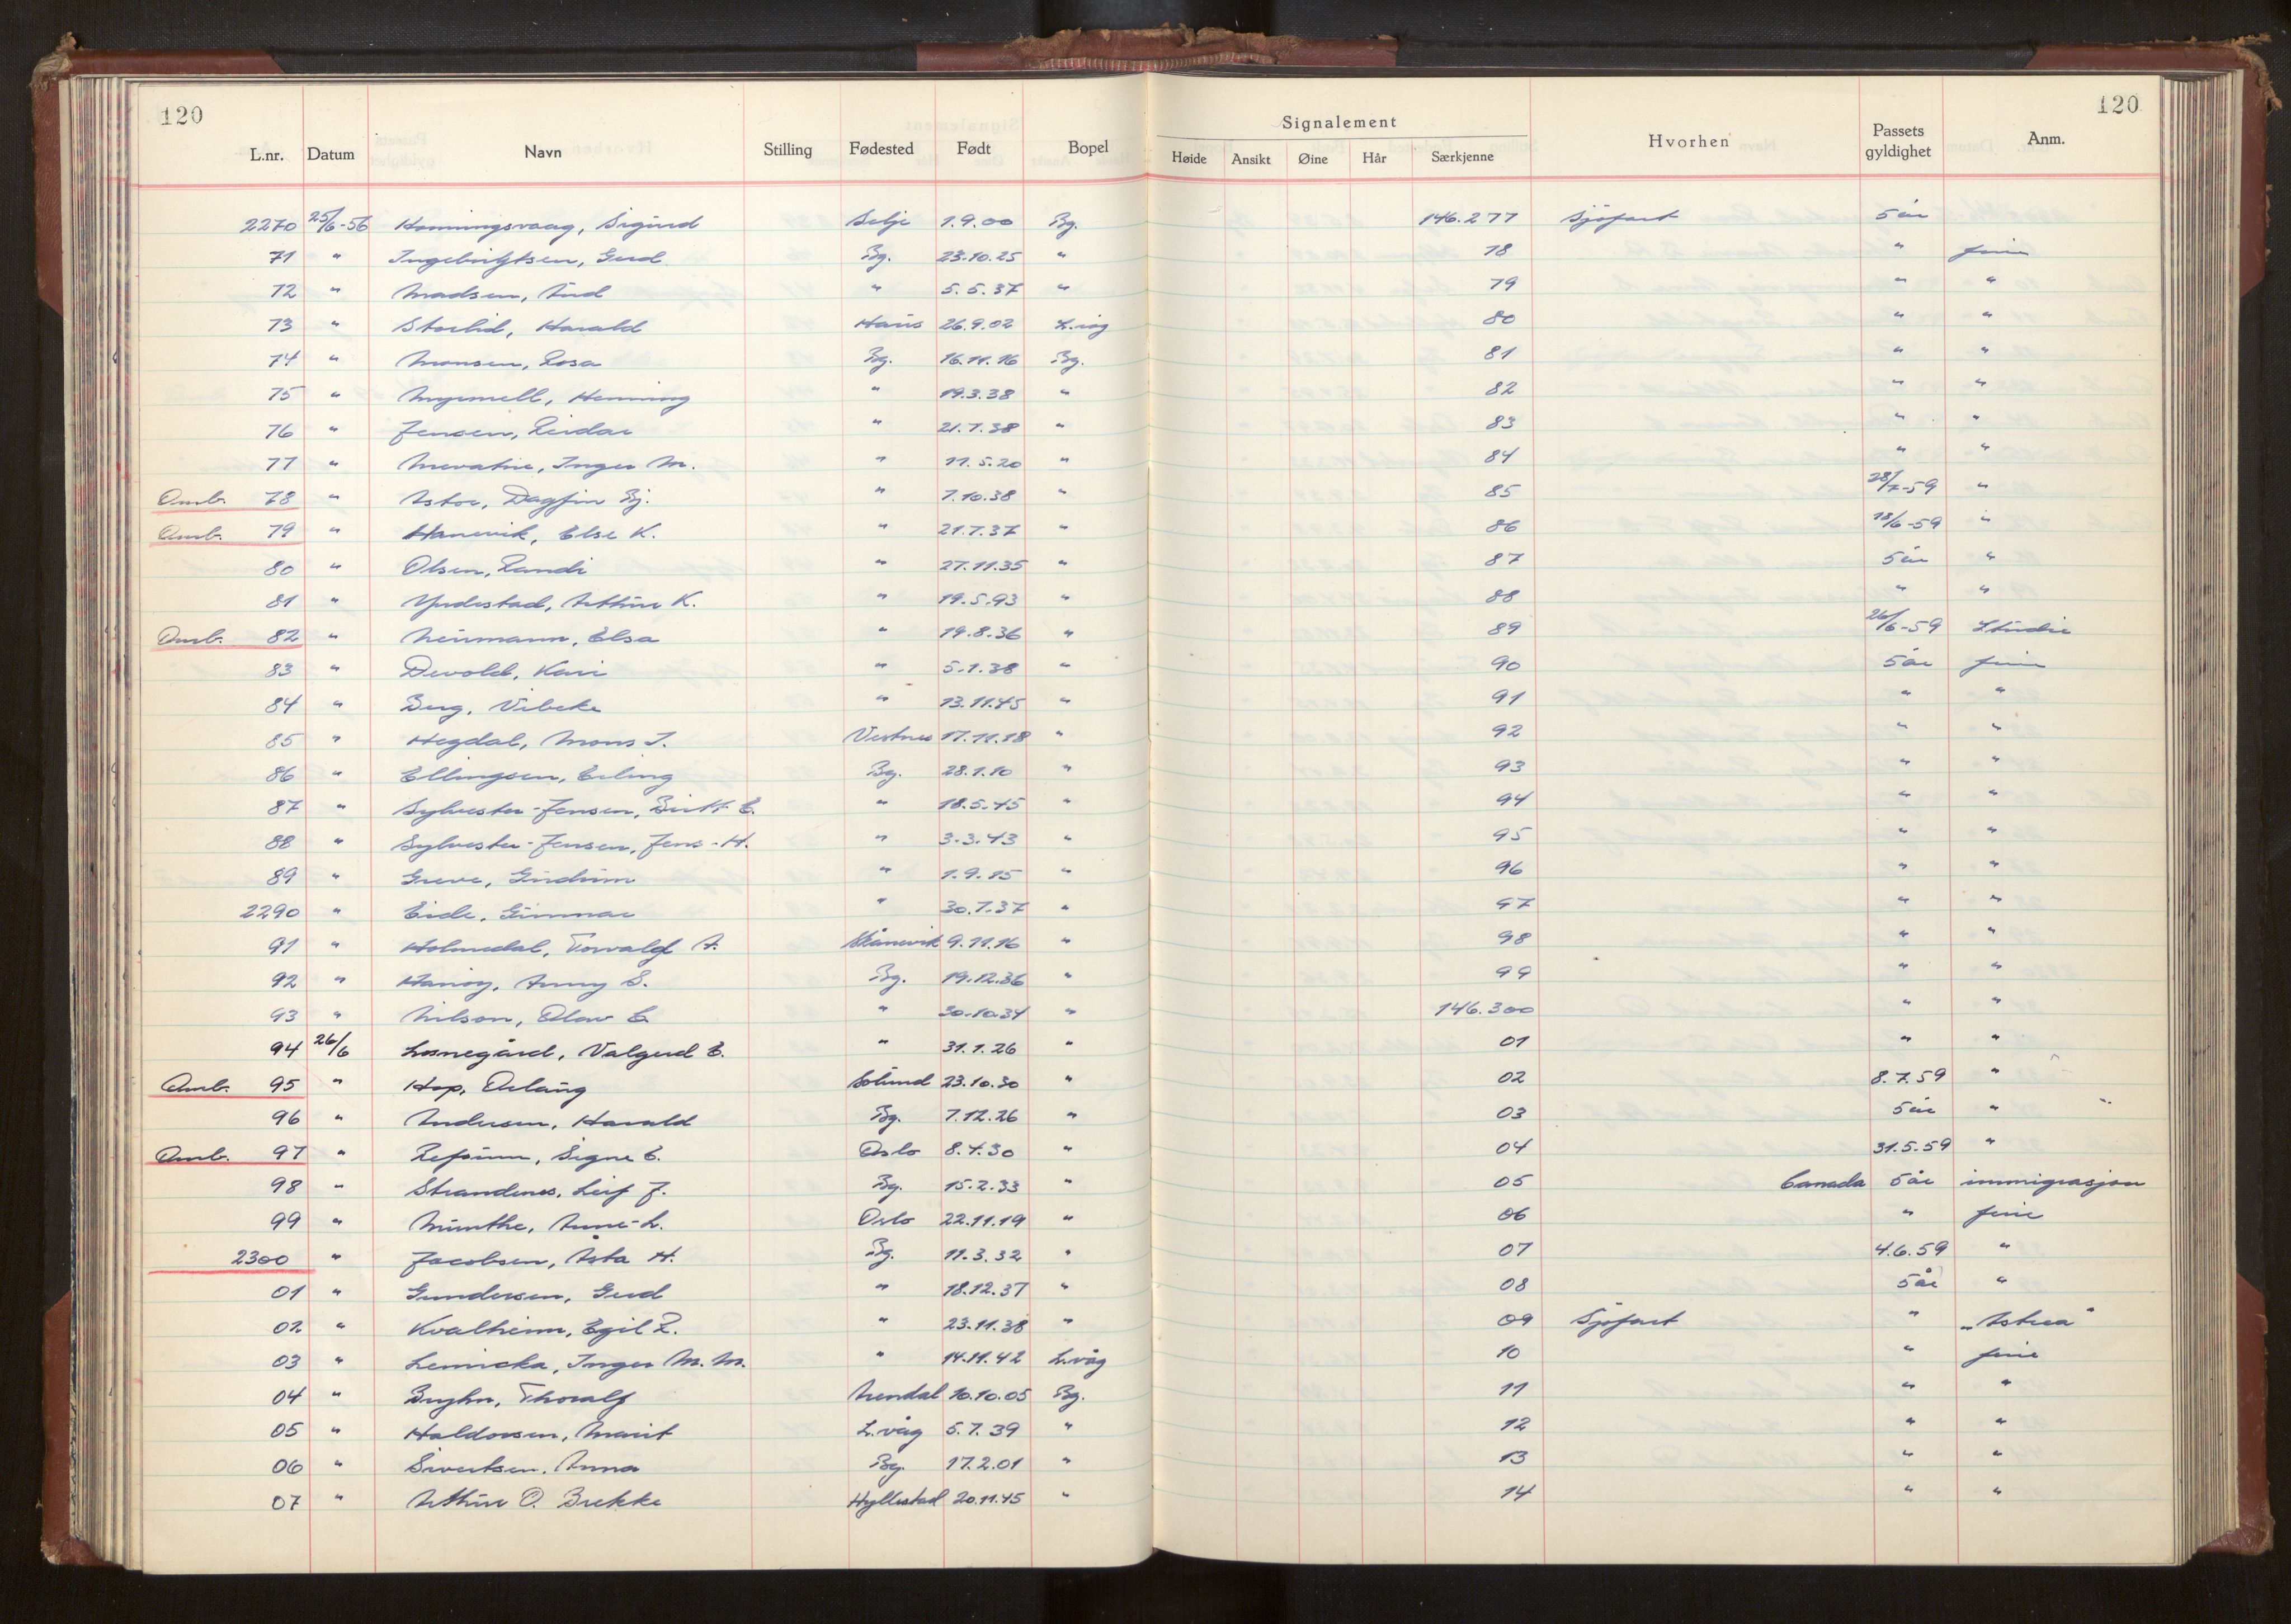 120 120
Signalement
L.nr. Datum Navn Stilling Fødested Født Bopel Høide Ansikt Øine Hår Særkjenne Hvorhen Passets gyldighet Anm.
2270 25/6-56 Honningsvaag, Sigurd Selje 1.9.00 Bg. 146.277 Sjøfart 5 år
71 " Ingebrigtsen, Gerd Bg. 23.10.25 " 78 " ferie
72 " Madsen, Aud " 5.5.37 " 79 " "
73 " Storlid, Harald Haus 26.9.02 L.våg 80 " "
74 " Monsen, Rosa Bg. 16.11.16 Bg. 81 " "
75 " Henning " 19.3.38 " 82 " "
76 " Jensen, Reidar " 21.7.38 " 83 " "
77 " Inger M. " 11.5.20 " 84 " "
Omb. 78 " Dagfin Bj. " 7.10.38 " 85 28/7-59 "
Omb. 79 " Hanevik, Else K. " 21.7.37 " 86 18/6-59 "
80 " Olsen, Randi " 27.11.35 " 87 5 år "
81 " Yndestad, Arthur K. " 19.5.93 " 88 " "
Omb. 82 " Neumann, Elsa " 19.8.36 " 89 26/6-59 Studie
83 " Devold, Kari " 5.1.38 " 90 5 år ferie
84 " Berg, Vibeke " 13.11.45 " 91 " "
85 " Hegdal, Mons J. Vestnes 17.11.18 " 92 " "
86 " Ellingsen, Erling Bg. 28.1.10 " 93 " "
87 " Sylvester-Jensen, Berit E. " 18.5.45 " 94 " "
88 " Sylvester-Jensen, Jens-H. " 3.3.43 " 95 " "
89 " Greve, Gudrun " 1.9.15 " 96 " "
2290 " Eide, Gunnar " 30.7.37 " 97 " "
91 " Holmedal, Torvald A. Skånevik 9.11.16 " 98 " "
92 " Anny S. Bg. 19.12.36 " 99 " "
93 " Nilson, Olav E. " 30.10.34 " 146.300 " "
94 26/6 Losnegård, Valgerd E. " 31.1.26 " 01 " "
Omb. 95 " Hop, Oslaug Solund 23.10.30 " 02 8.7.59 "
96 " Andersen, Harald Bg. 7.12.26 " 03 5 år "
Omb. 97 " Refsum, Signe E. Oslo 8.4.30 " 04 31.5.59 "
98 " Strandenes, Leif J. Bg. 15.2.33 " 05 Canada 5 år immigrasjon
99 " Munthe, Anne-L. Oslo 22.11.19 " 06 " ferie
2300 " Jacobsen, Asta H. Bg. 11.3.32 " 07 4.6.59 "
01 " Gundersen, Gerd " 18.12.37 " 08 5 år "
02 " Kvalheim, Egil R. " 23.11.38 " 09 Sjøfart " „Astrea"
03 " Lemicka, Inger M. M. " 14.11.42 L.våg 10 " ferie
04 " Bryhn, Thoralf Arendal 10.10.05 Bg. 11 " "
05 " Haldorsen, Marit L.våg 5.7.39 " 12 " "
06 " Sivertsen, Anna Bg. 17.2.01 " 13 " "
07 " Arthur O. Brekke Hyllestad 20.11.45 " 14 " "